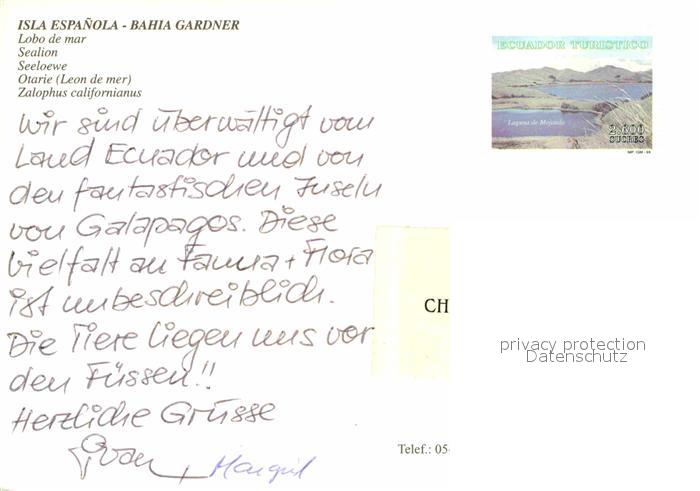 ISLA ESPAÑOLA - BAHIA GARDNER
Lobo de mar
Sealion
Seeloewe
Otarie (Leon de mer)
Zalophus californianus
ECUADOR TURISTICO
Laguna de Mojanda
2.600
SUCRES
Wir sind überwältigt vom
Land Ecuador und von
den fantastischen Inseln
von Galapagos. Diese
Vielfalt an Fauna + Flora
ist unbeschreiblich.
Die Tiere liegen uns vor
den Füssen!!
Herzliche Grüsse
CH
privacy protection
Datenschutz
Telef.: 05-